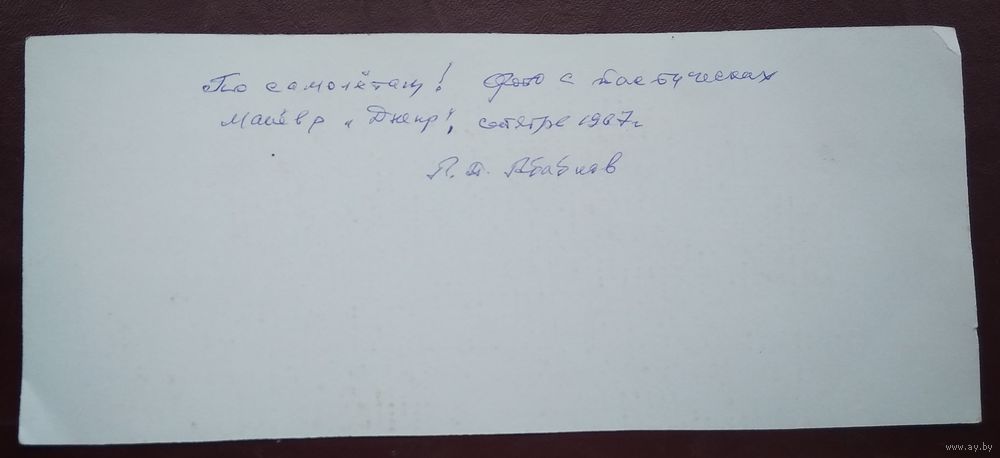 По самолётам! Фото с тактических
манёвр „Днепр", сентябре 1967г
П.
www.ay.by